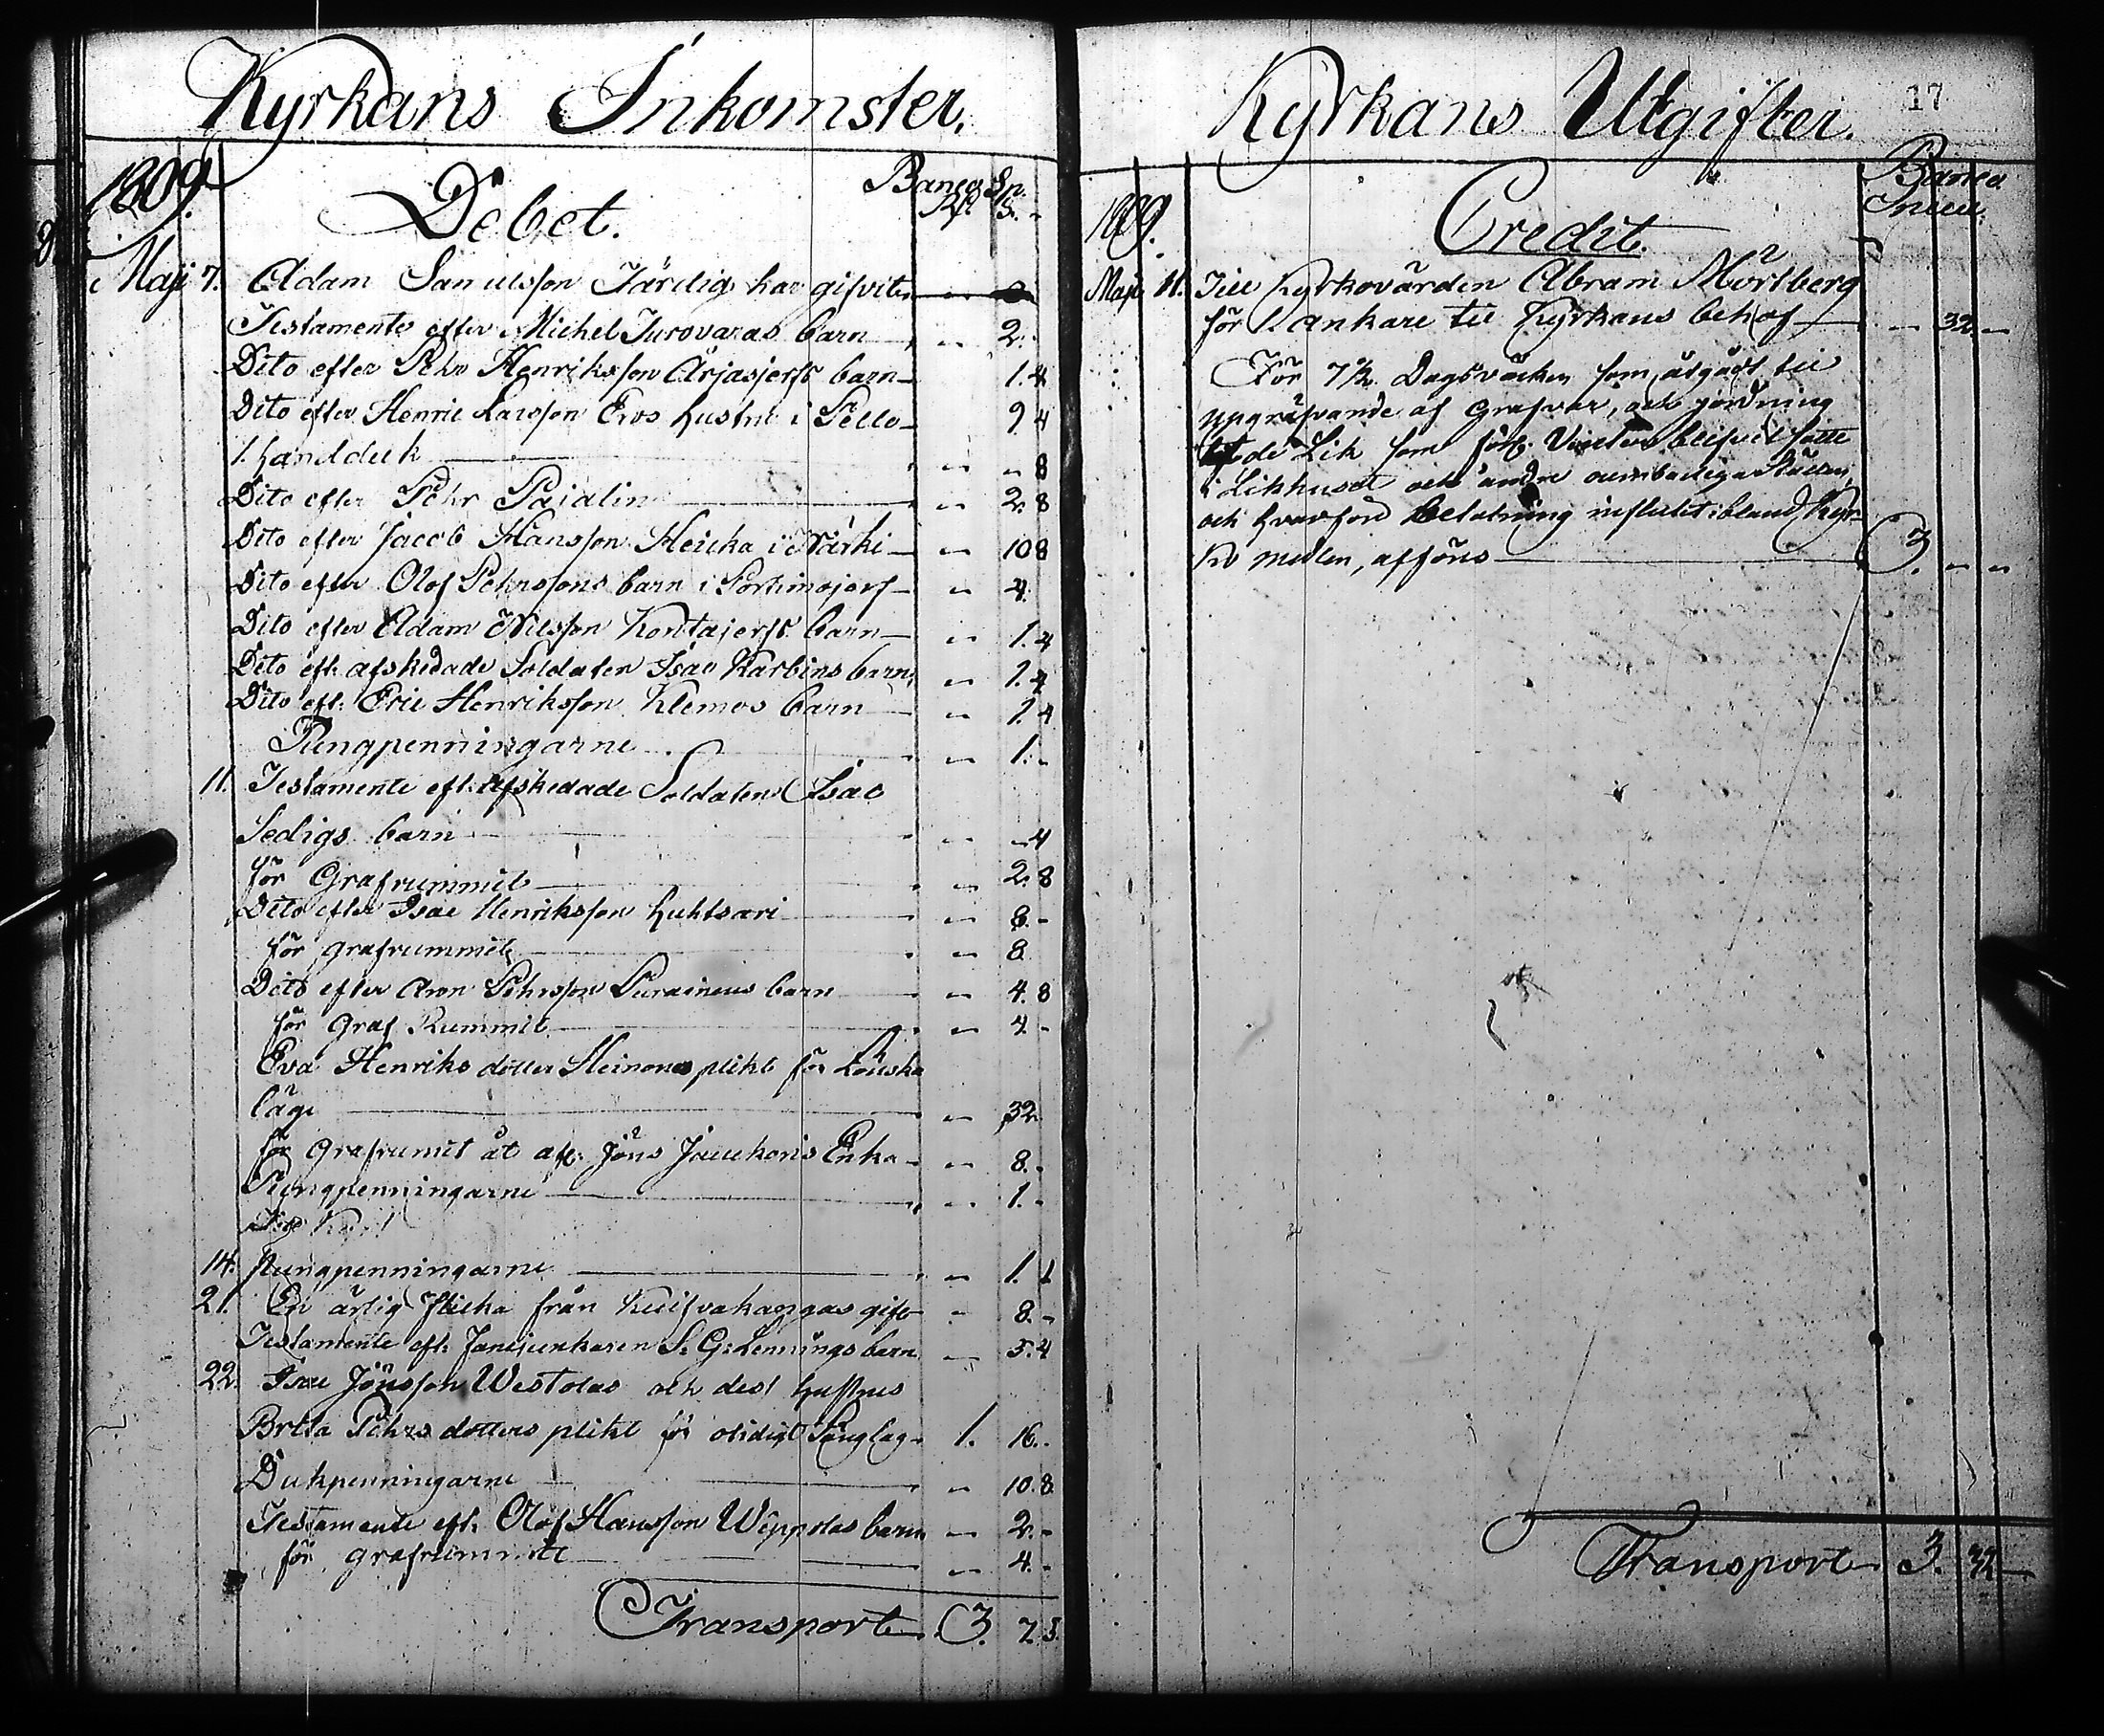 Kyrkans Inkomster.
1809.
Debet.
Banco Sp.
Rf. S.
Maji 7. Adam Samuelsson Färdig har gifvit
Testamente efter Michel Turovaras barn 2.
Dito efter Pehr Henriksson Ärjasjerfs barn 1. 4
Dito efter Henric Larsson Eros hustru i Pello 9. 4
1. handduk 8
Dito efter Pehr Paidlin 2. 8
Dito efter Jacob Hansson Heicka i Närki 10 8
Dito efter Olof Pehrssons barn i Portimojerf 4.
Dito efter Adam Nilsson Kontajerfs barn 1. 4
Dito eft. afskedade Soldaten Isac Karbins barn 1. 4
Dito eft. Eric Henriksson Klemos barn 1. 4
Pungpenningarne 1. -
11. Testamente eft. afskedade Soldaten Isac
Sedigs barn 4
för Grafrummit 2. 8
Dito efter Isac Henriksson Luhtsari 8. -
för grafrummit 8
Dito efter Aron Pehrsson Puraineus barn 4. 8
för Graf Rummit 4. -
Eva Henriks dotter Heinonos plikt för Löuska
läge 32
för Grafrumit åt afl. Jöns Jauckoris Enka 8. -
Pungpenningarne 1. -
14. Pungpenningarne 1. 1
21. En ärlig flicka från Kuifvakangas gift 8. -
Testamente eft. Fanejunkaren S. G. Lennings barn 5. 4
22. Isac Jönsson Westolas och dess hustrus
Brita Pehrs dotters plikt för otidigt Sänglag 1. 16. -
Dukpenningarne 10. 8
Testamente eft. Olof Hansson Wippolas barn 2. -
för grafrummit 4. -
Transport 3. 7. 5.
Kyrkans Utgifter.
17
1809.
Credit.
Banco
Maji 11. Till Kyrkovärden Abram Mörtberg
för 1. ankare til Kyrkans behof 32 -
För 7½ Dagsvärken som åtgådt til
upgräfvande af grafvar, och jordning
af de Lik som förl. Vinter blifvit satte
i Likhuset och andre
och hvarföre belöning influtit ibland Kyr-
ko medlen, afföres 3. - -
Transport 3. 32 -